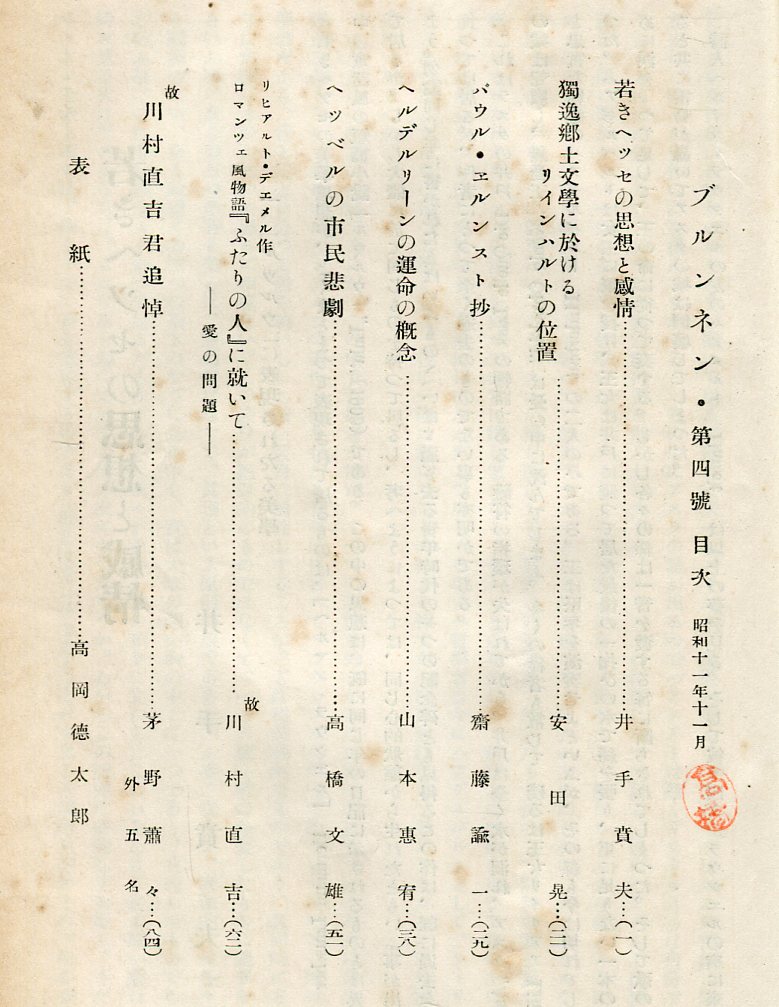 ブルンネン・第四號 目次 昭和十一年十一月
若きヘッセの思想と感情……井手賁夫…(一)
獨逸鄕土文學に於ける
リインハルトの位置……安田晃…(二一)
パウル・エルンスト抄……齋藤諭一…(二九)
ヘルデルリーンの運命の槪念……山本惠宥…(三八)
ヘッベルの市民悲劇……高橋文雄…(五一)
リヒアルト・デエメル作
ロマンツェ風物語『ふたりの人』に就いて……故川村直吉…(六二)
――愛の問題――
故川村直吉君追悼……茅野蕭々…(八四)
外五名
表紙……高岡德太郎